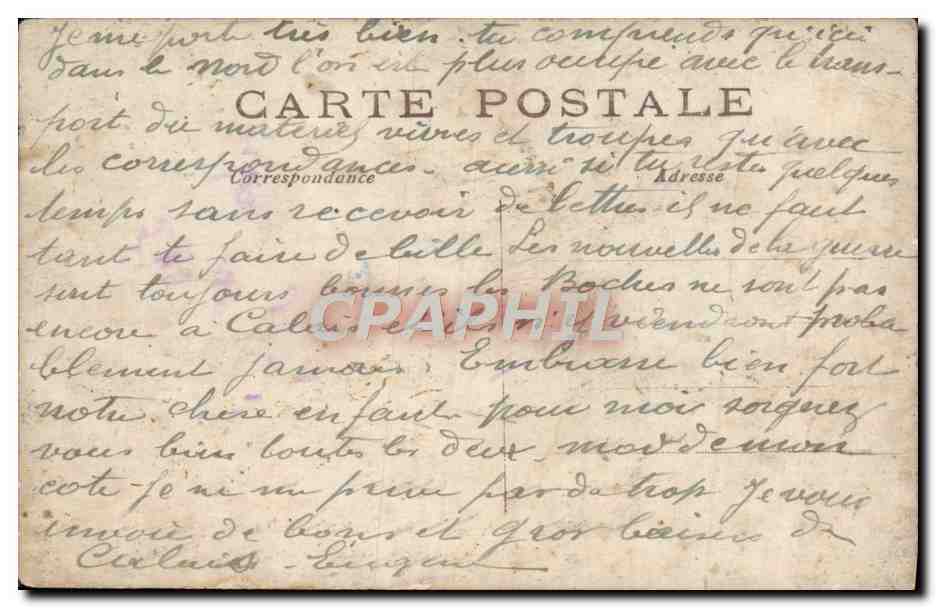 Je me porte très bien. tu comprends qu'ici
dans le Nord l'on est plus occupé avec le trans-
CARTE POSTALE
port du materiel vivres et troupes qu'avec
les correspondances. aussi si tu restes quelques
Correspondance
Adresse
temps sans recevoir de lettres il ne faut
tant te faire de bille Les nouvelles de la guerre
sont toujours bonnes les Boches ne sont pas
encore a Calais et ils n'y viendront proba
CPAPHIL
blement jamais. Embrasse bien fort
notre chere enfant pour moi soignez
vous bien toutes les deux, moi de mon
cote je ne me prive pas de trop Je vous
envoie de bons et gros baisers de
Calais. Eugene